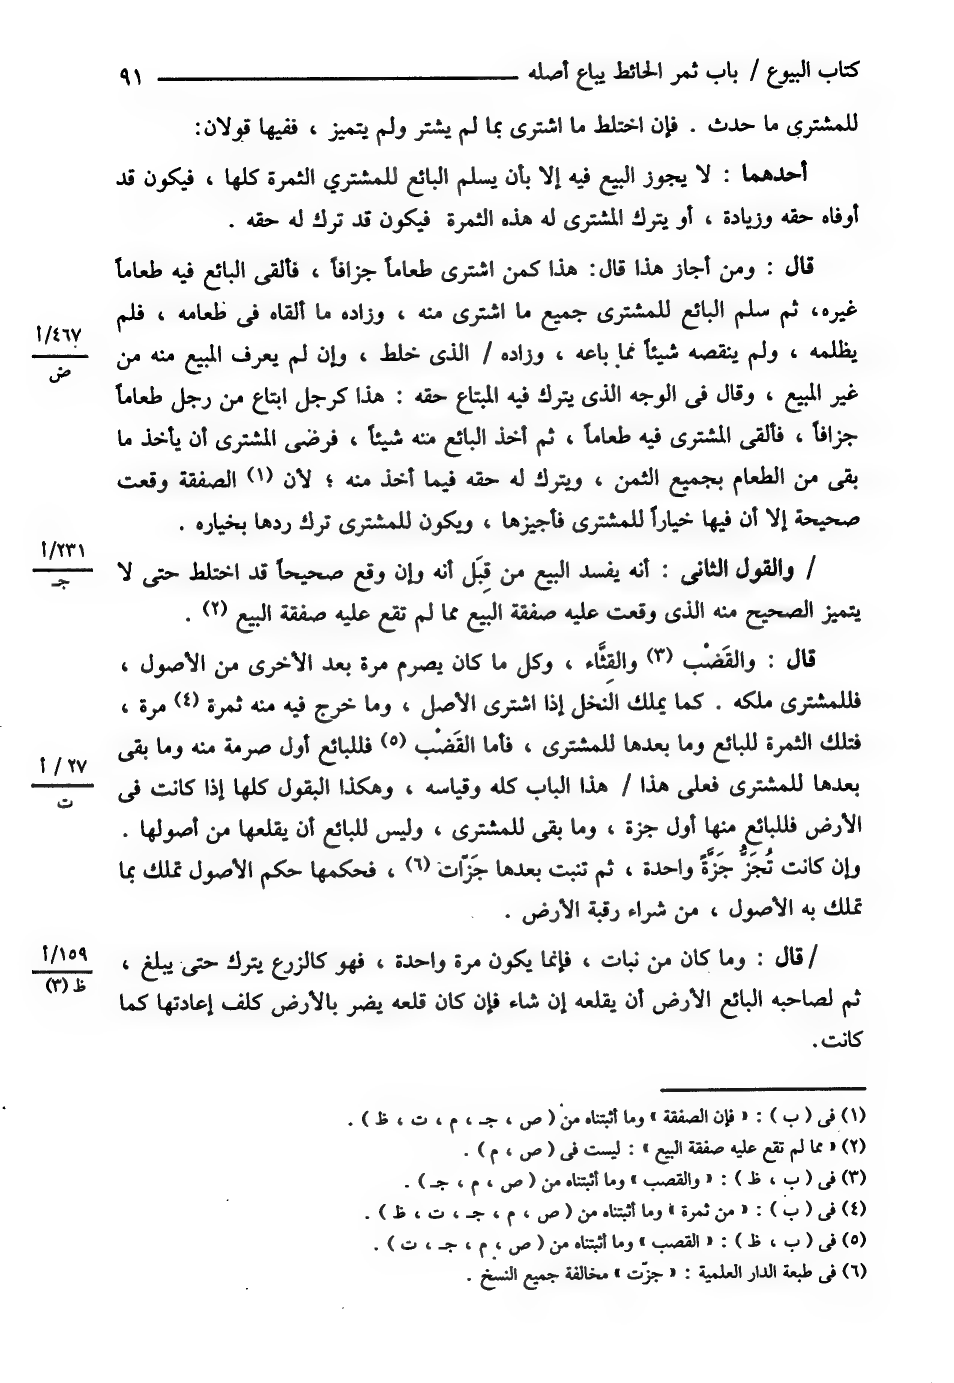 كتاب البيوع / باب ثمر الحائط يباع أصله ــــــــــ ٩١
للمشترى ما حدث . فإن اختلط ما اشترى بما لم يشتر ولم يتميز ، ففيها قولان:
أحدهما : لا يجوز البيع فيه إلا بأن يسلم البائع للمشتري الثمرة كلها ، فيكون قد
أوفاه حقه وزيادة ، أو يترك المشترى له هذه الثمرة فيكون قد ترك له حقه .
قال : ومن أجاز هذا قال: هذا كمن اشترى طعاماً جزافاً ، فألقى البائع فيه طعاماً
غيره، ثم سلم البائع للمشترى جميع ما اشترى منه ، وزاده ما ألقاه فى طعامه ، فلم
٤٦٧/أ
ض
يظلمه ، ولم ينقصه شيئاً مما باعه ، وزاده / الذى خلط ، وإن لم يعرف المبيع منه من
غير المبيع ، وقال فى الوجه الذى يترك فيه المبتاع حقه : هذا كرجل ابتاع من رجل طعاماً
جزافاً ، فألقى المشترى فيه طعاماً ، ثم أخذ البائع منه شيئاً ، فرضى المشترى أن يأخذ ما
بقى من الطعام بجميع الثمن ، ويترك له حقه فيما أخذ منه ؛ لأن (١) الصفقة وقعت
صحيحة إلا أن فيها خياراً للمشترى فأجيزها ، ويكون للمشترى ترك ردها بخياره .
٢٣١/أ
جـ
/ والقول الثانى : أنه يفسد البيع من قِبَل أنه وإن وقع صحيحاً قد اختلط حتى لا
يتميز الصحيح منه الذى وقعت عليه صفقة البيع مما لم تقع عليه صفقة البيع (٢) .
قال : والقَضْب (٣) والقِثَّاء ، وكل ما كان يصرم مرة بعد الأخرى من الأصول ،
فللمشترى ملكه . كما يملك النخل إذا اشترى الأصل ، وما خرج فيه منه ثمرة (٤) مرة ،
فتلك الثمرة للبائع وما بعدها للمشترى ، فأما القَضْب (٥) فللبائع أول صرمة منه وما بقى
٢٧ / أ
ت
بعدها للمشترى فعلى هذا / هذا الباب كله وقياسه ، وهكذا البقول كلها إذا كانت فى
الأرض فللبائع منها أول جزة ، وما بقى للمشترى ، وليس للبائع أن يقلعها من أصولها .
وإن كانت تُجَزُّ جَزَّةً واحدة ، ثم تنبت بعدها جَزَّات (٦) ، فحكمها حكم الأصول تملك بما
تملك به الأصول ، من شراء رقبة الأرض .
١٥٩/أ
ظ (٣)
/ قال : وما كان من نبات ، فإنما يكون مرة واحدة ، فهو كالزرع يترك حتى يبلغ ،
ثم لصاحبه البائع الأرض أن يقلعه إن شاء فإن كان قلعه يضر بالأرض كلف إعادتها كما
كانت.
(١) فى ( ب ) : « فإن الصفقة » وما أثبتناه من ( ص ، جـ ، م ، ت ، ظ ) .
(٢) « مما لم تقع عليه صفقة البيع » : ليست فى ( ص ، م ) .
(٣) فى ( ب ، ظ ) : « والقصب » وما أثبتناه من ( ص ، م ، جـ ) .
(٤) فى ( ب ) : « من ثمرة » وما أثبتناه من ( ص ، م ، جـ ، ت ، ظ ) .
(٥) فى ( ب ، ظ ) : « القصب » وما أثبتناه من ( ص ، م ، جـ ، ت ) .
(٦) فى طبعة الدار العلمية : « جزّت » مخالفة جميع النسخ .